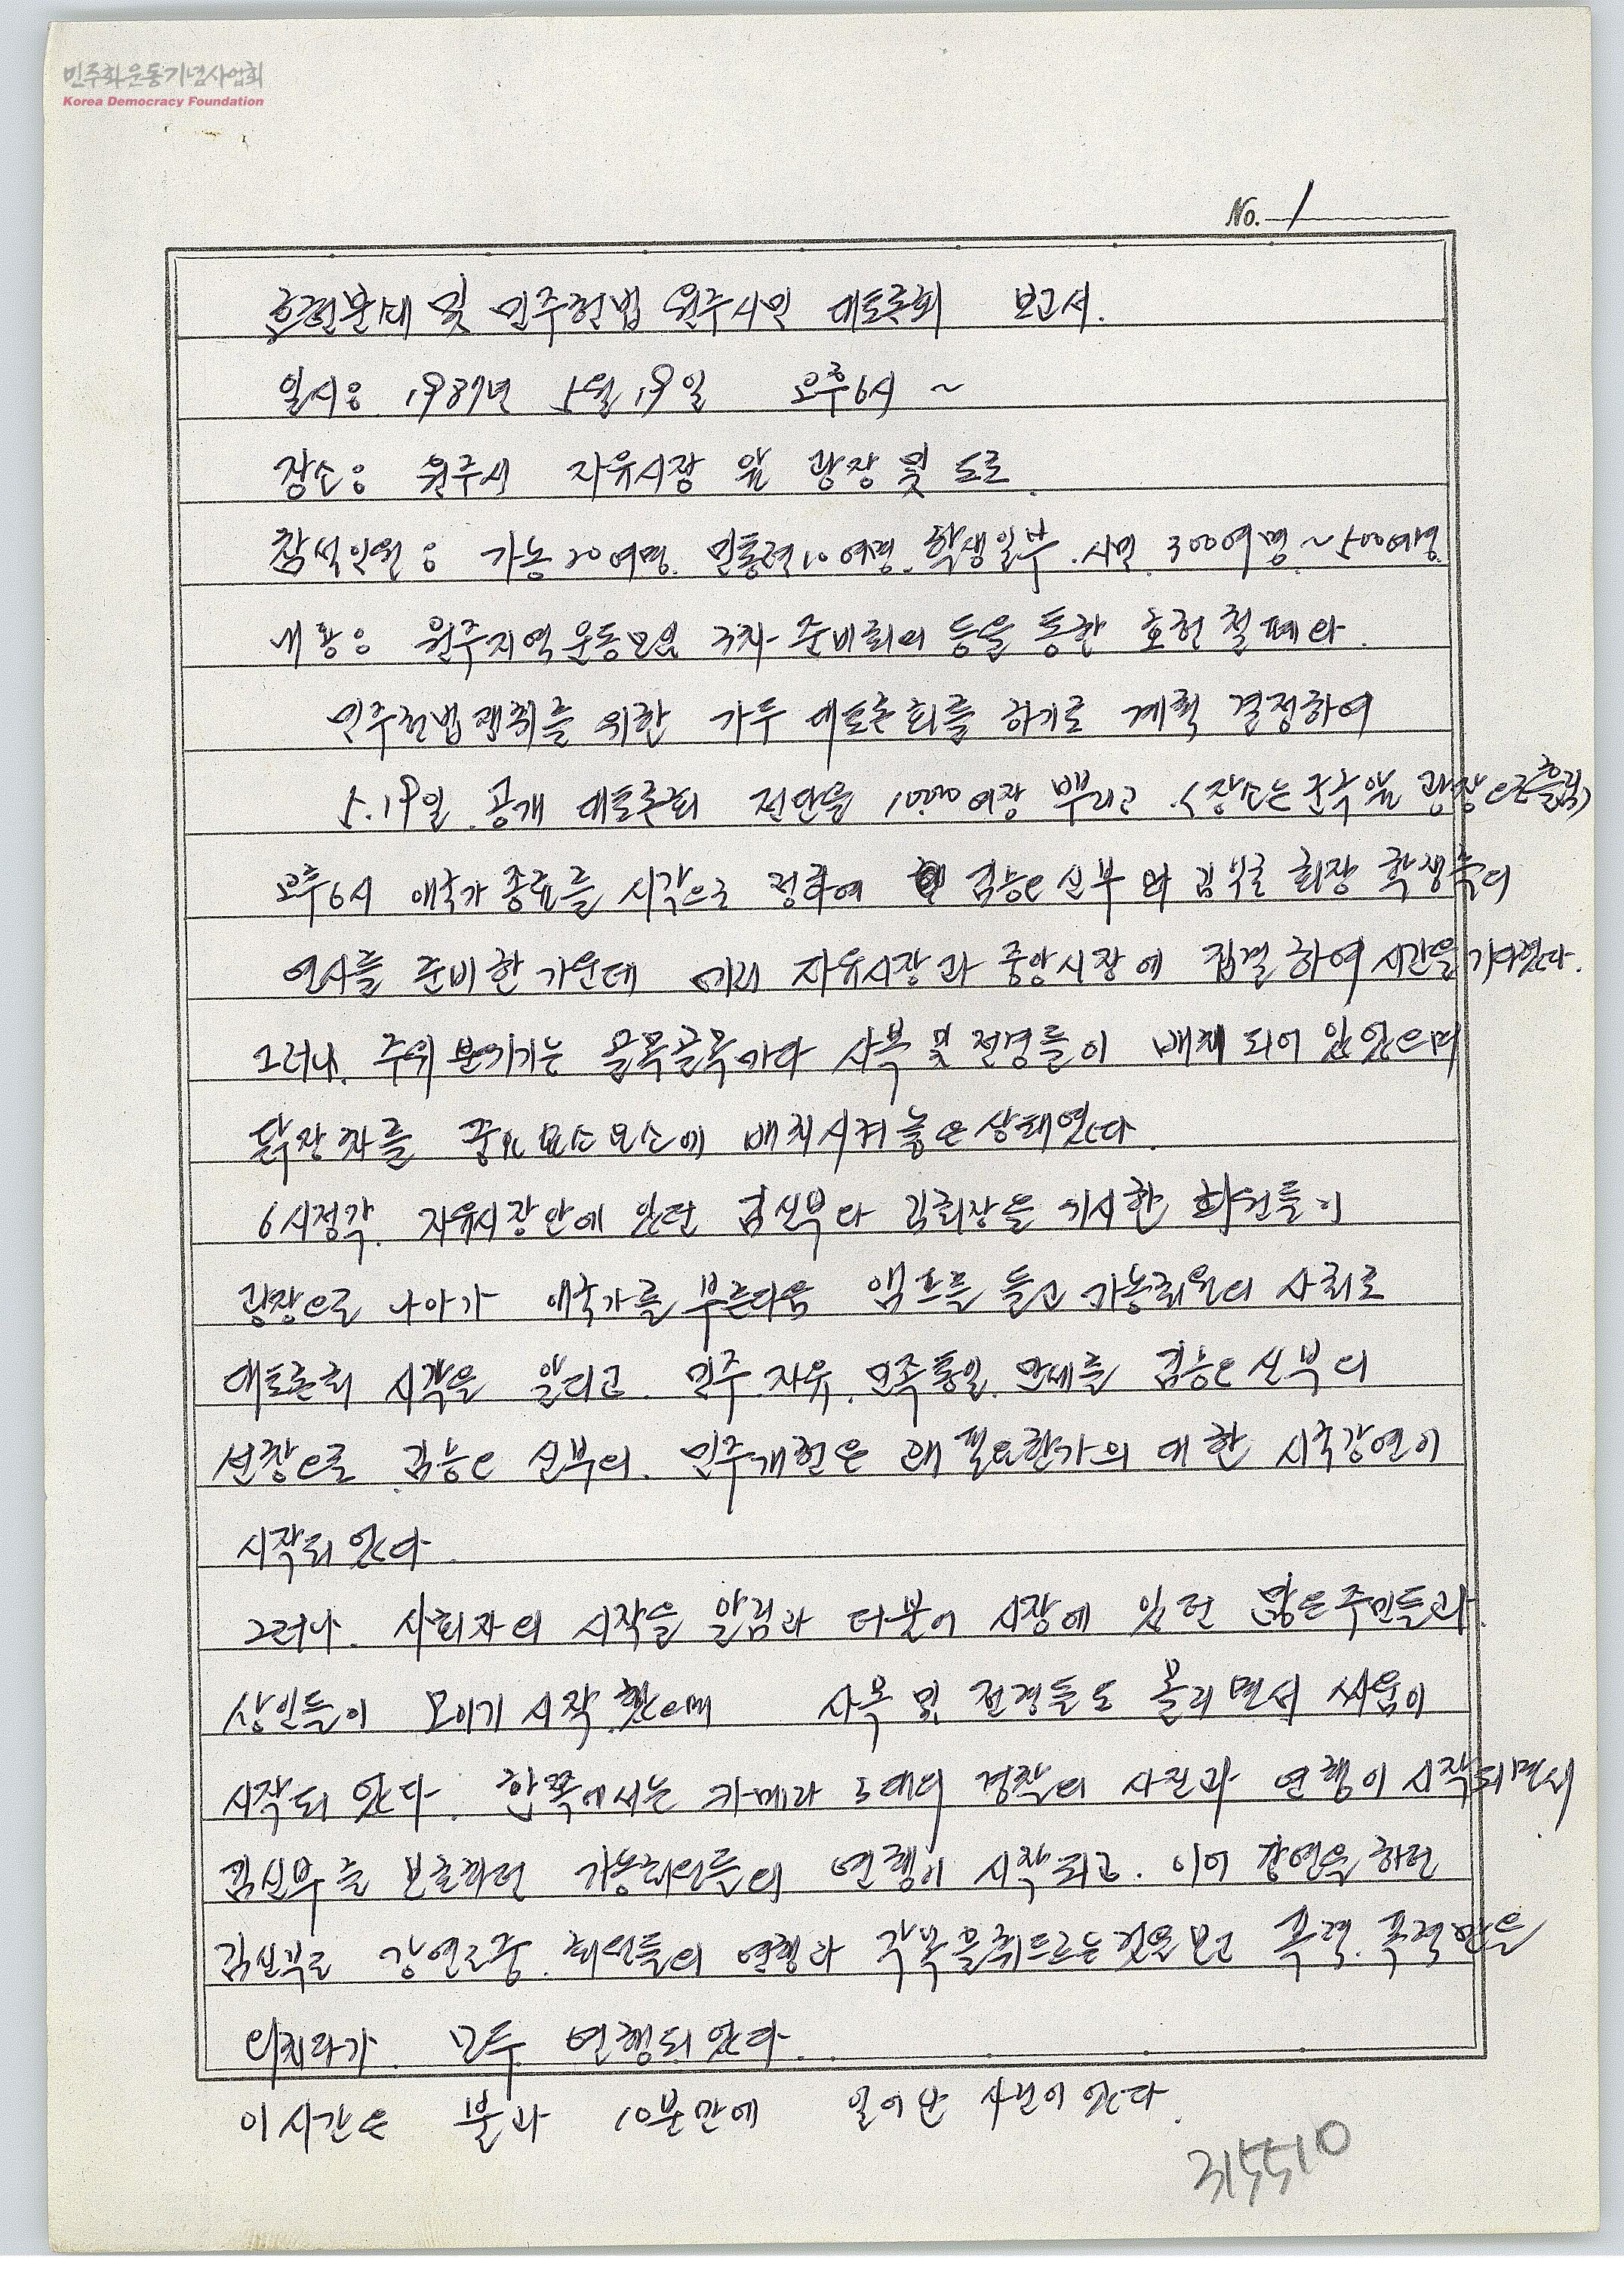 민주화운동기념사업회
Korea Democracy Foundation
No. 1
호헌분쇄 및 민주헌법 원주시민 대토론회 보고서.
일시: 1987년 5월 19일 오후6시 ~
장소: 원주시 자유시장 앞 광장 및 도로.
참석인원: 가농20여명. 민통련10여명. 학생일부. 시민. 300여명~500여명.
내용: 원주지역 운동모임 3차 준비회의 등을 통한 호헌철폐와.
민주헌법쟁취를 위한 가두 대토론회를 하기로 계획 결정하여
5.19일 공개 대토론회 전단을 10000여장 뿌리고.(장소는 군수 앞 광장으로
오후6시 애국가 종료를 시각으로 정하여 김승오신부와 회장 학생측의
연사를 준비한 가운데 미리 자유시장과 중앙시장에 집결하여 시간을 기다렸다.
그러나. 주위 분위기는 골목골목마다 사복 및 전경들이 배치되어 있었으며
닭장차를 중요 요소요소에 배치시켜 놓은 상태였다.
6시정각. 자유시장안에 있던 김신부와 김회장을 기시한 회원들이
광장으로 나아가 애국가를 부른다음 앰프를 들고 가농회원의 사회로
대토론회 시작을 알리고. 민주.자유.민족통일.만세를 김승오신부의
선창으로 김승오 신부의. 민주개헌은 왜 필요한가의 대한 시국강연이
시작되었다.
그러나. 사회자의 시작을 알림과 더불어 시장에 있던 많은주민들과.
상인들이 모이기 시작.했으며 사복 및 전경들도 몰리면서 싸움이
시작되었다. 한쪽에서는 카메라 3대의 경찰의 사진과 연행이 시작되면서.
김신부를 보호하던 가농회원들의 연행이 시작되고. 이어 강연을 하던
김신부도 강연도중. 회원들의 연행과 각목을휘두르는것을보고 폭력.폭력만을
외치다가. 모두 연행되었다.
이시간은 불과 10분만에 일어난 사건이었다.
315510